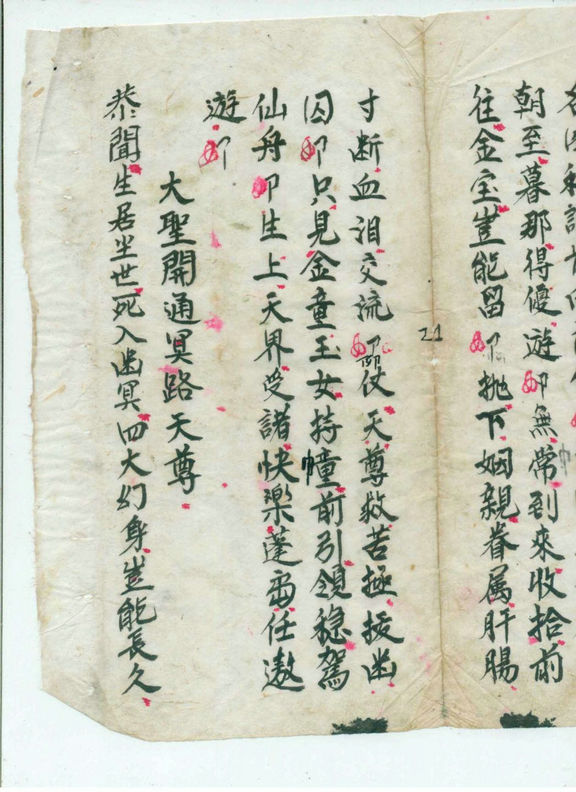 朝至暮那得優遊卯無常到來收拾前
往金宝豈能留卯抛下姻親眷属肝腸
21
寸断血泪交流卯仗天尊救苦極拔幽
囚卯只見金童玉女持幢前引領穏駕
仙舟卯生上天界受諸快樂蓬岛任遨
遊卯
大聖開通冥路天尊
恭聞生居尘世死入幽冥四大幻身豈能長久